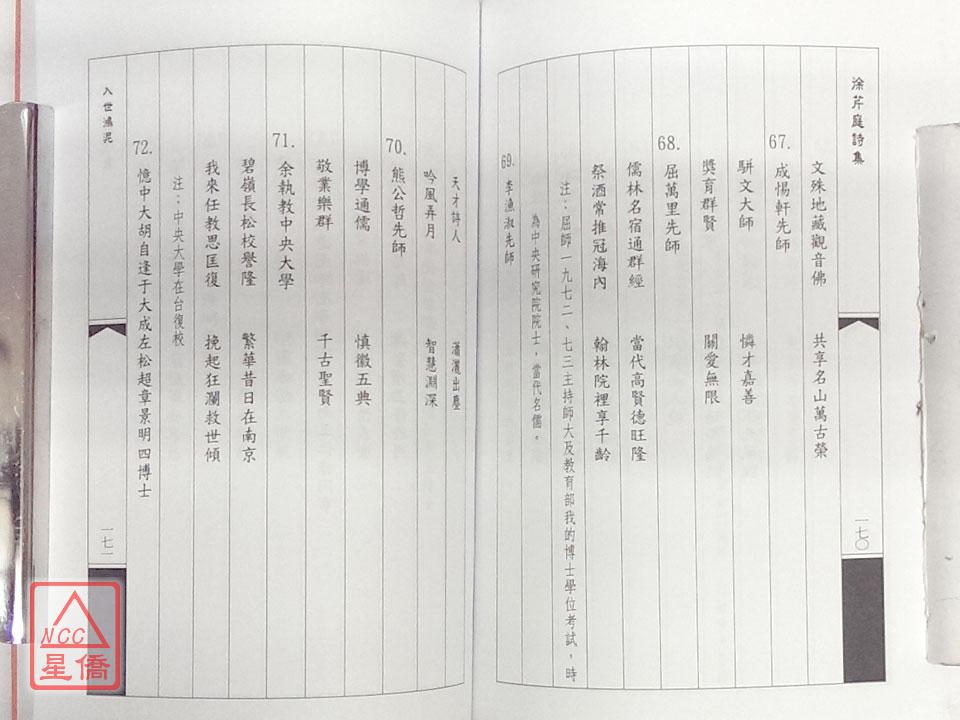 涂芹庭詩集
一七〇
文殊地藏觀音佛 共享名山萬古榮
67. 成惕軒先師
駢文大師 憐才嘉善
獎育群賢 關愛無限
68. 屈萬里先師
儒林名宿通群經 當代高賢德旺隆
祭酒常推冠海內 翰林院裡享千齡
注：屈師一九七二、七三主持師大及教育部我的博士學位考試，時
為中央研究院院士，當代名儒。
69. 李漁淑先師
天才詩人 瀟灑出塵
吟風弄月 智慧淵深
70. 熊公哲先師
博學通儒 慎徽五典
敬業樂群 千古聖賢
71. 余執教中央大學
碧嶺長松校譽隆 繁華昔日在南京
我來任教思匡復 挽起狂瀾救世傾
注：中央大學在台復校
72. 憶中大胡自逢于大成左松超章景明四博士
入世鴻泥
一七一
NCC
星僑